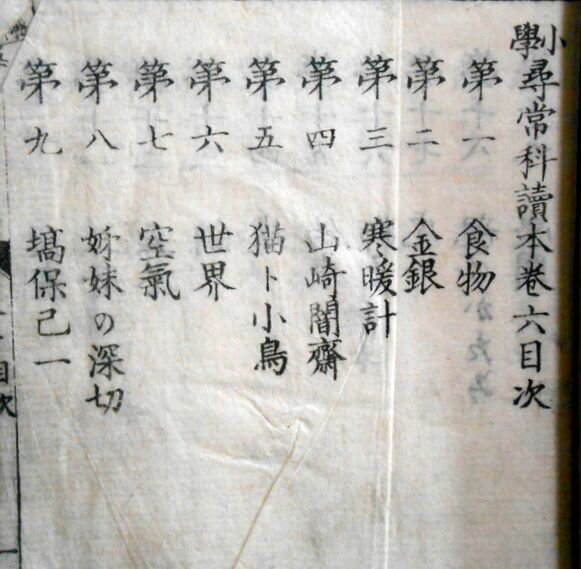 小學尋常科讀本卷六目次
第一 食物
第二 金銀
第三 寒暖計
第四 山崎闇齋
第五 猫ト小鳥
第六 世界
第七 空氣
第八 姊妹の深切
第九 塙保己一
目次